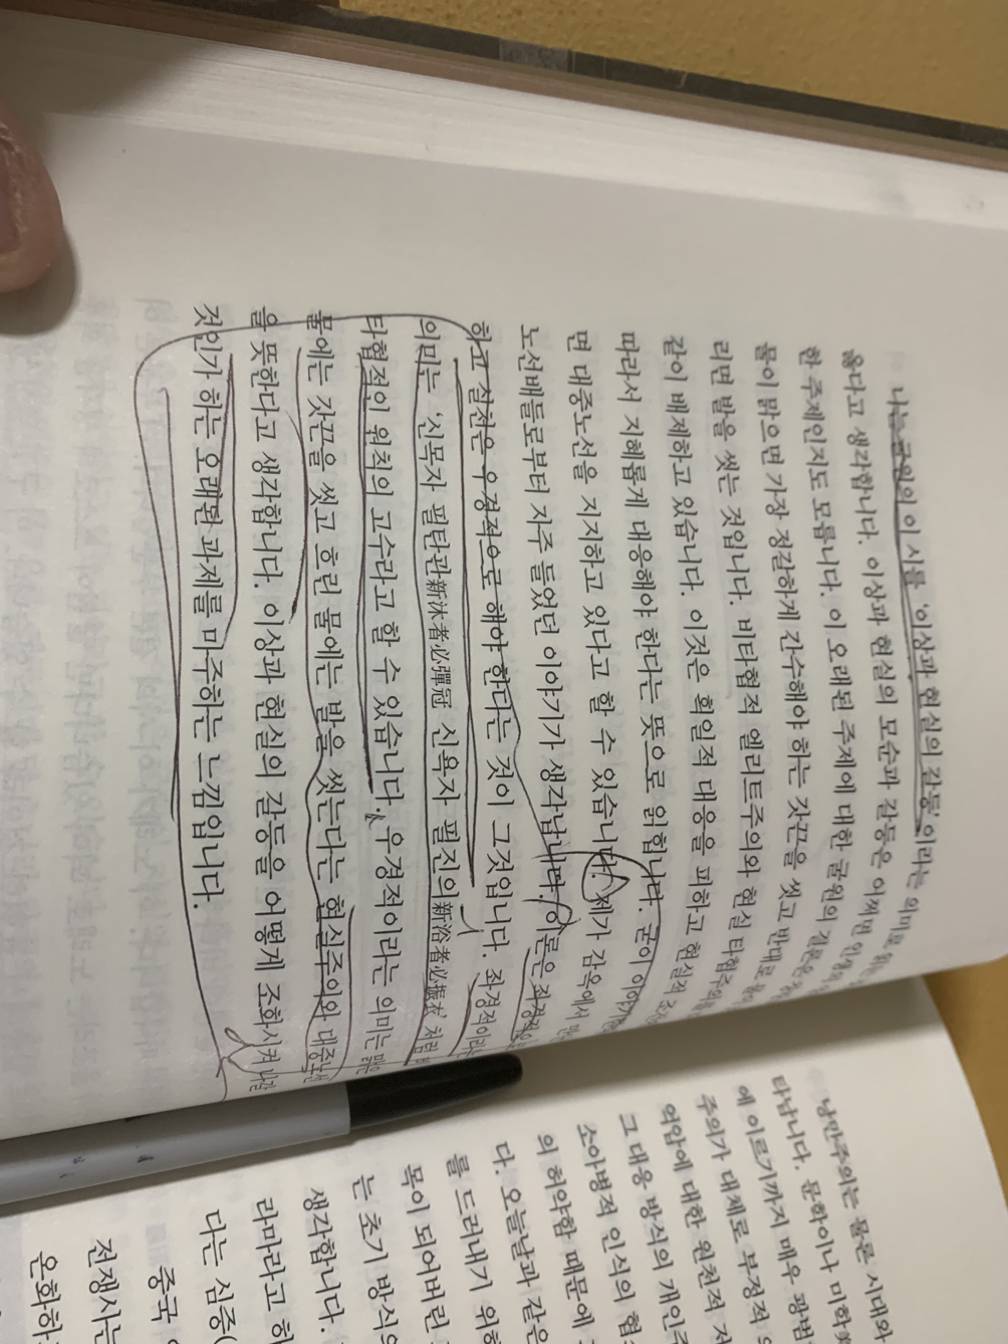 나는 굴원의 이 시를 '이상과 현실의 갈등'이라는 의미로 읽는
옳다고 생각합니다. 이상과 현실의 모순과 갈등은 어쩌면 인생의
한 주제인지도 모릅니다. 이 오래된 주제에 대한 굴원의 결론은
물이 맑으면 가장 정갈하게 간수해야 하는 갓끈을 씻고 반대로
리면 발을 씻는 것입니다. 비타협적 엘리트주의와 현실 타협주의를
같이 배제하고 있습니다. 이것은 획일적 대응을 피하고 현실적
따라서 지혜롭게 대응해야 한다는 뜻으로 읽힙니다. 굳이 이야기
면 대중노선을 지지하고 있다고 할 수 있습니다. 제가 감옥에서
노선배들로부터 자주 들었던 이야기가 생각납니다. 이론은 좌경적으
하고 실천은 우경적으로 해야 한다는 것이 그것입니다. 좌경적이라는
의미는 '신목자 필탄관新沐者必彈冠 신욕자 필진의新浴者必振衣'처럼
타협적인 원칙의 고수라고 할 수 있습니다. 우경적이라는 의미는 맑은
물에는 갓끈을 씻고 흐린 물에는 발을 씻는다는 현실주의와 대중노선
을 뜻한다고 생각합니다. 이상과 현실의 갈등을 어떻게 조화시켜 나갈
것인가 하는 오래된 과제를 마주하는 느낌입니다.
낭만주의는 물론 시대와
타납니다. 문학이나 미학
에 이르기까지 매우 광범
주의가 대체로 부정적
억압에 대한 원천적
그 대응 방식의 개인
소아병적 인식의 협
의 허약함 때문에
다. 오늘날과 같은
를 드러내기 위해
목이 되어버린
는 초기 방식의
생각합니다.
라마라고 하
다는 심증(
중국
전쟁사는
온화하